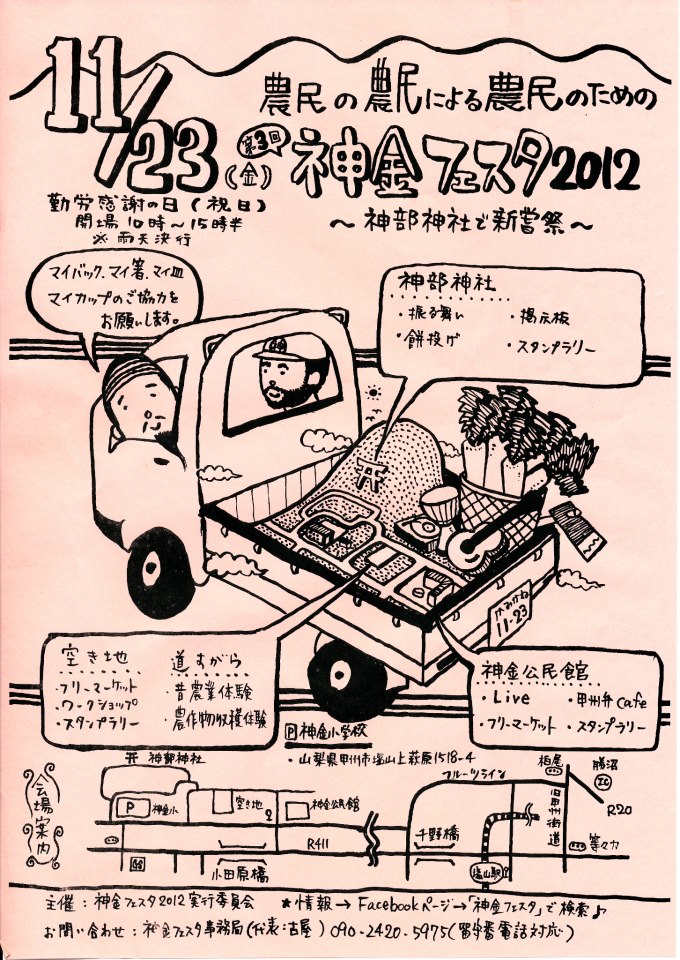 11/23(金)
農民の農民による農民のための
第3回 神金フェスタ2012
～神部神社で新嘗祭～
勤労感謝の日(祝日)
開場10時～15時半
※雨天決行
マイバック、マイ箸、マイ皿
マイカップのご協力を
お願いします。
神部神社
・振る舞い ・掲示板
・餅投げ ・スタンプラリー
かみかね
11-23
空き地
・フリーマーケット
・ワークショップ
・スタンプラリー
道すがら
・昔農業体験
・農作物収穫体験
神金公民館
・Live ・甲州弁cafe
・フリーマーケット ・スタンプラリー
P 神金小学校
・山梨県甲州市塩山上萩原1518-4
会場案内
神部神社
P 神金小
空き地
神金公民館
小田原橋
R411
千野橋
フルーツライン
塩山駅
旧甲州街道
柏尾
勝沼
IC
R20
等々力
主催：神金フェスタ2012実行委員会 ★情報→Facebookページ→「神金フェスタ」で検索♪
お問い合わせ：神金フェスタ事務局(代表：古屋) 090-2420-5975(留守番電話対応)